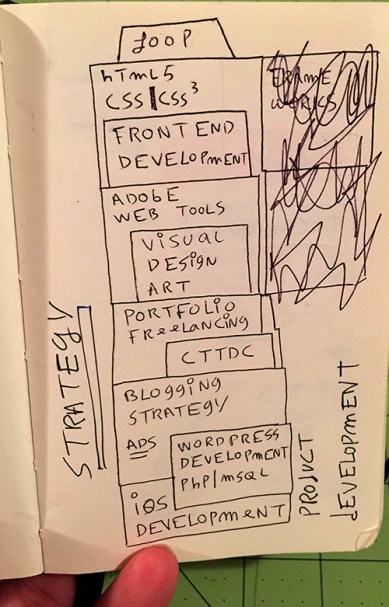 LOOP
HTML5
CSS|CSS3
FRAME
WORKS
FRONT END
DEVELOPMENT
ADOBE
WEB TOOLS
VISUAL
DESIGN
ART
PORTFOLIO
FREELANCING
CTTDC
BLOGGING
STRATEGY
ADS
WORDPRESS
DEVELOPMENT
PHP/MSQL
iOS
DEVELOPMENT
STRATEGY
PRODUCT
DEVELOPMENT